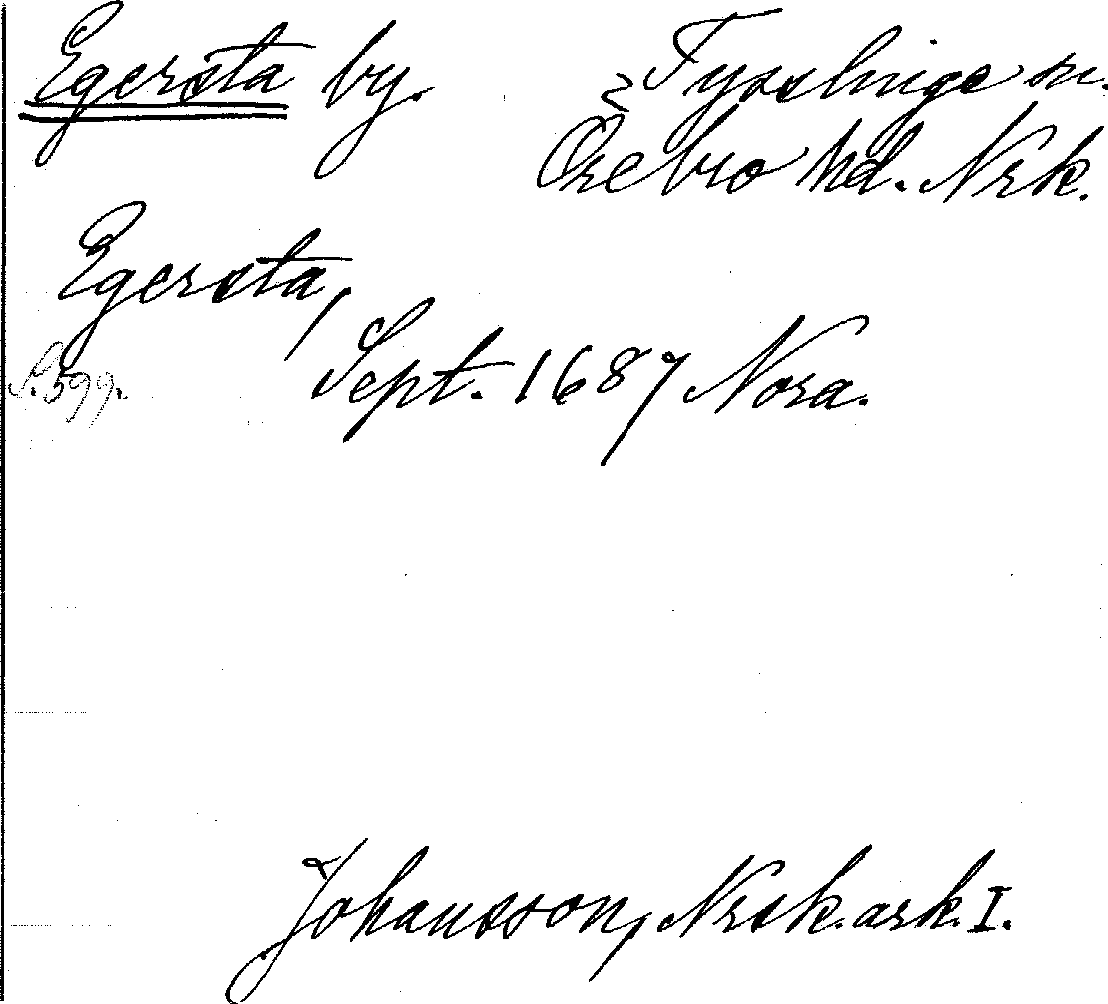 Egersta by. Tysslinge sn.
Örebro hd. Nrk.
Egersta,
Sept. 1687 Nora.
S. 599.
Johansson, Nrsk. ark. I.